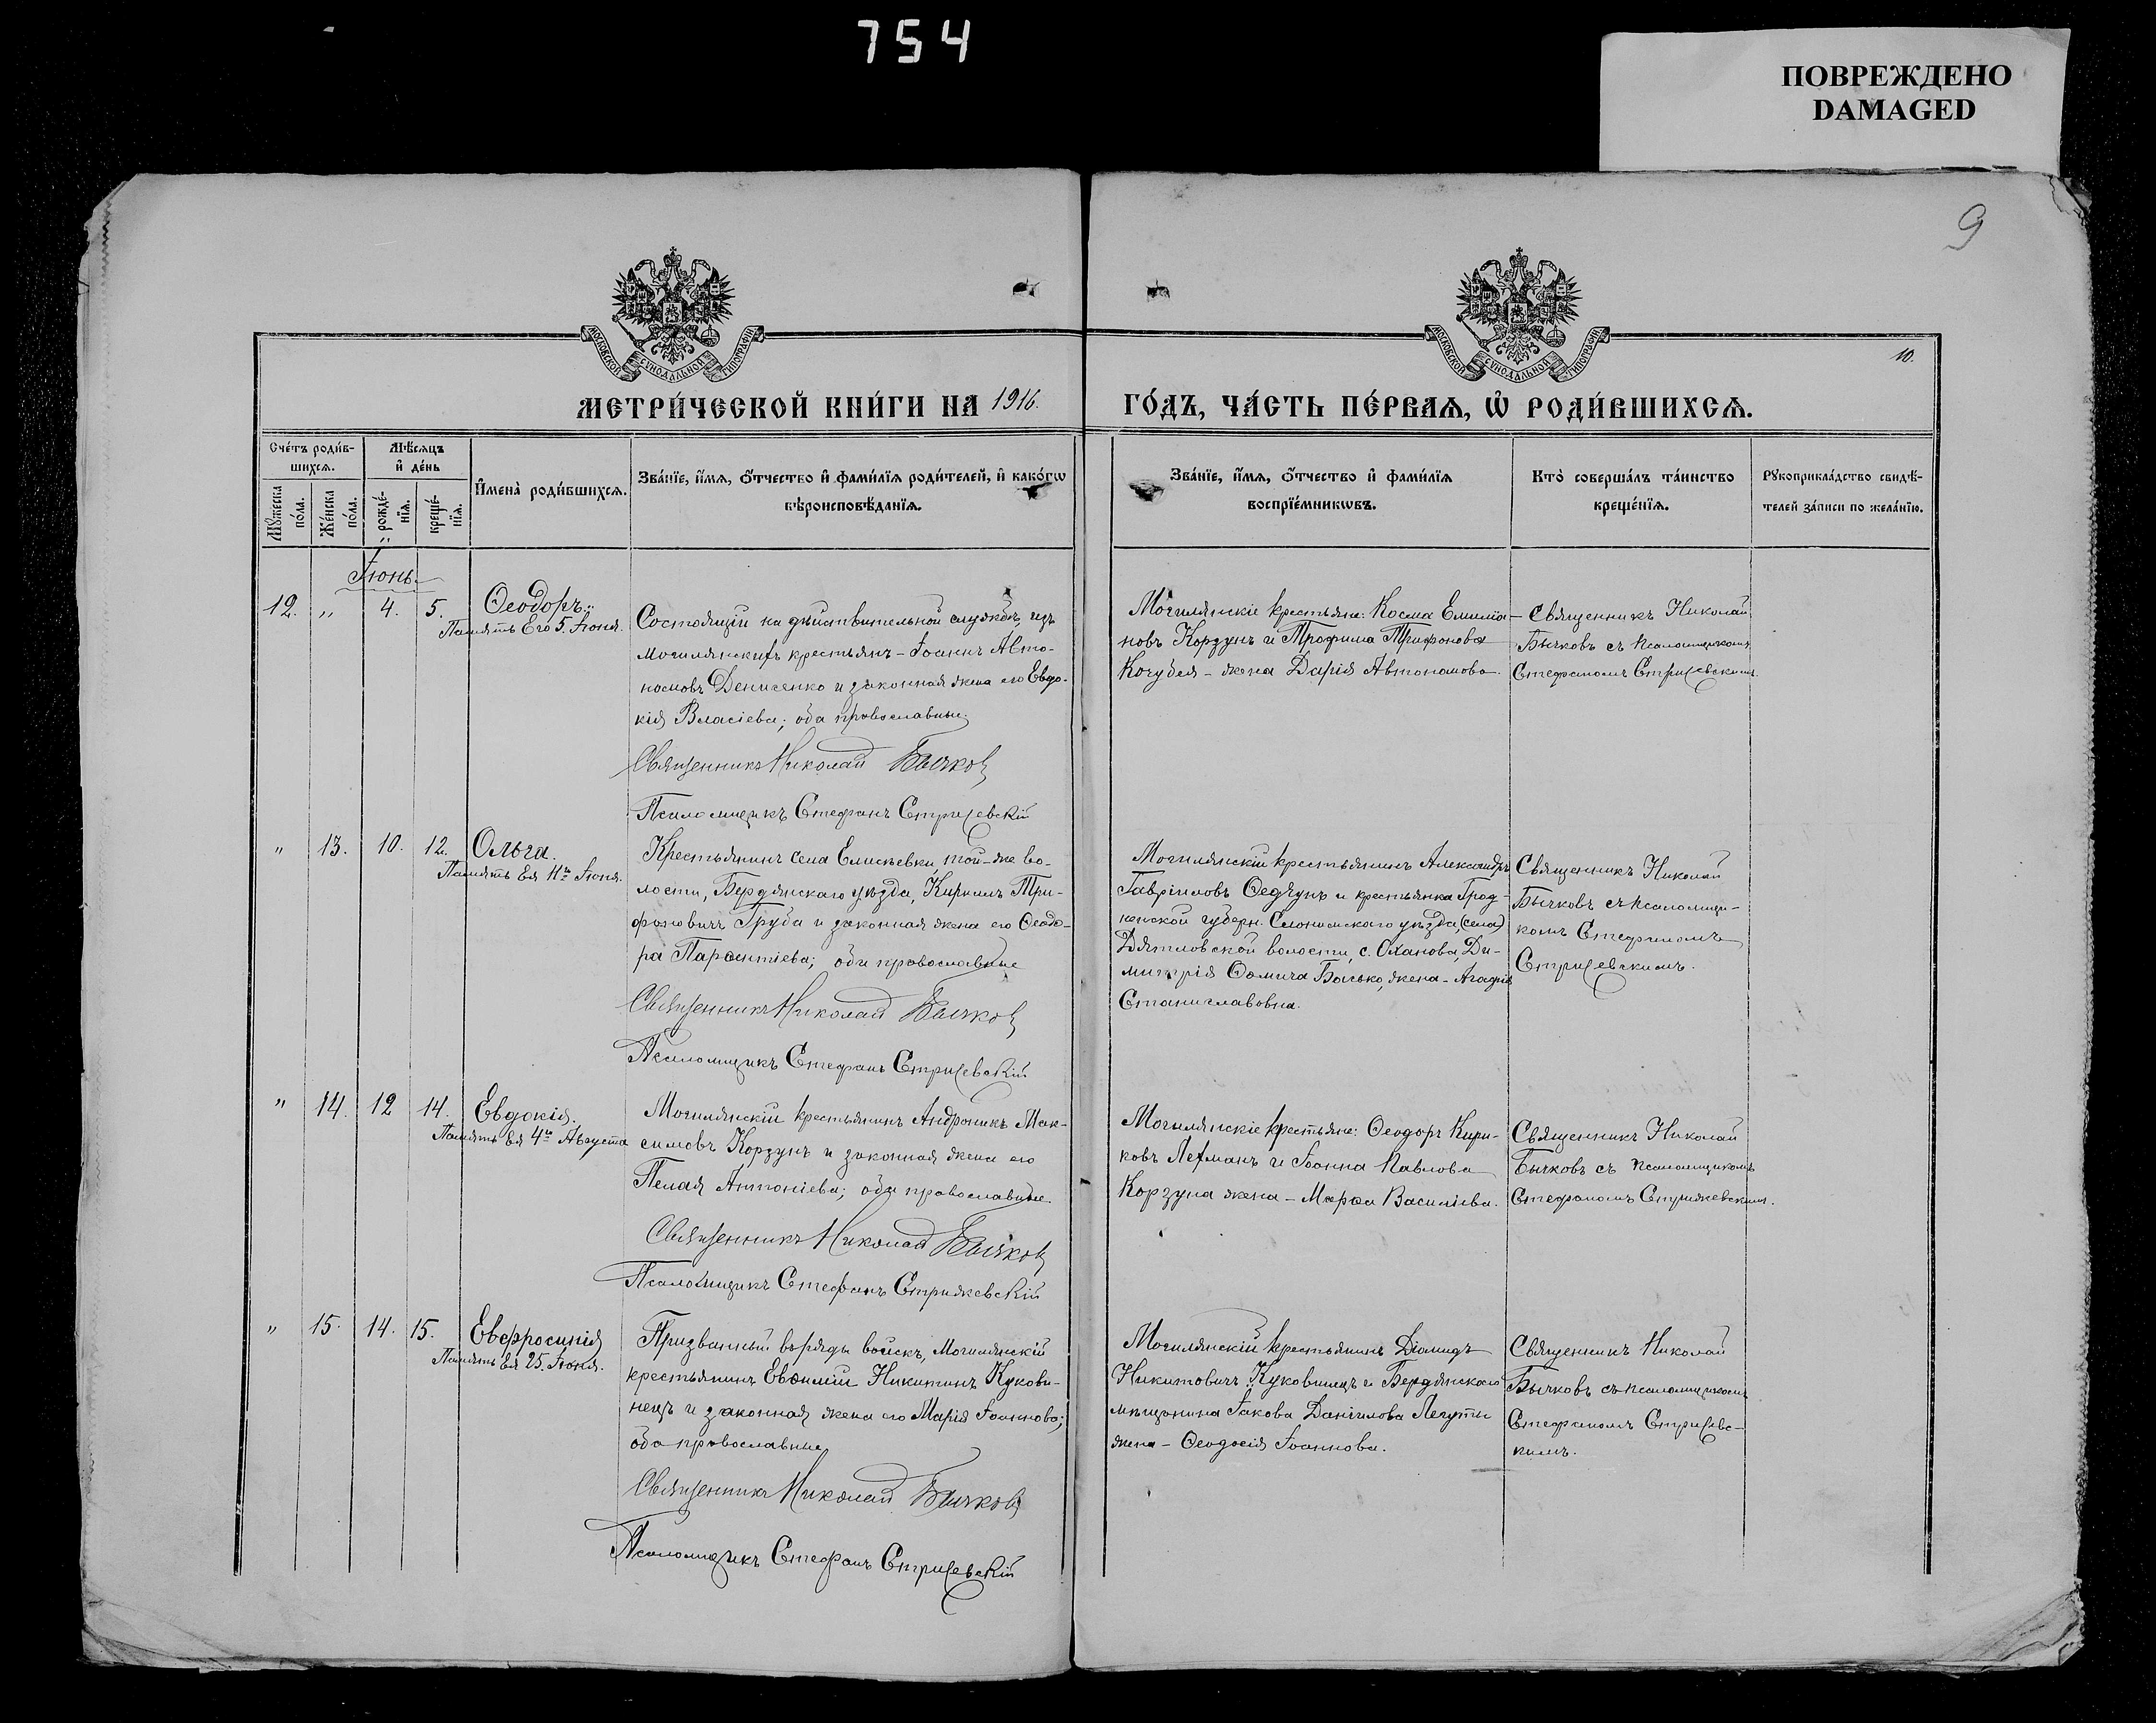 754
ПОВРЕЖДЕНО
DAMAGED
9
МОСКОВСКОЙ СѴНОДАЛЬНОЙ ТИПОГРАФІИ
МОСКОВСКОЙ СѴНОДАЛЬНОЙ ТИПОГРАФІИ
10.
МЕТРИ́ЧЕСКОЙ КНИ́ГИ НА 1916.
ГО́ДЪ, ЧА́СТЬ ПЕ́РВАѦ, Ѡ҆ РОДИ́ВШИХСѦ.
Сче́тъ роди́в-
шихсѧ.
Мѣ́сѧцъ
и҆ де́нь
И҆мена̀ роди́вшихсѧ.
Зва́нїе, и҆́мѧ, ѻ҆́тчество и҆ фами́лїѧ роди́телей, и҆ како́гѡ
вѣроисповѣ́данїѧ.
Мꙋ́жеска
по́ла.
Же́нска
по́ла.
рожде́-
нїѧ.
креще́-
нїѧ.
Зва́нїе, и҆́мѧ, ѻ҆́тчество и҆ фами́лїѧ
воспрїе́мникѡвъ.
Кто̀ соверша́лъ та́инство
креще́нїѧ.
Рꙋкоприкла́дство свидѣ́-
телей за́писи по жела́нїю.
Іюнь.
12. „ 4. 5. Ѳеодоръ.
Память Его 5. Іюня.
Состоящій на дѣйствительной службѣ, изъ
могилянскихъ крестьянъ – Іоаннъ Авто-
номовъ Денисенко и законная жена его Евдо-
кія Власіева; оба православные.
Священникъ Николай Бычковъ
Псаломщикъ Стефанъ Стрижевскій
Могилянскіе крестьяне: Косма Емилiа-
новъ Корзунъ и Трофима Трифонова
Кочубея – жена Дарія Автономова.
Священникъ Николай
Бычковъ съ псаломщикомъ
Стефаномъ Стрижевскимъ.
„ 13. 10. 12. Ольга.
Память Ея 11го Іюня.
Крестьянинъ села Елисѣевки, той-же во-
лости, Бердянскаго уѣзда, Кириллъ Три-
фоновичъ Груба и законная жена его Ѳеодо-
ра Парѳентіева; оба православные
Священникъ Николай Бычковъ
Псаломщикъ Стефанъ Стрижевскій
Могилянскій крестьянинъ Александръ
Гавріиловъ и крестьянка Грод-
ненской губерн. Слонимскаго уѣзда, (села)
Дятловской волости, с. Оханова, Ди-
митрія Ѳомича Босько, жена – Агафія
Станиславовна.
Священникъ Николай
Бычковъ съ псаломщи-
комъ Стефаномъ
Стрижевскимъ.
„ 14. 12 14. Евдокія.
Память Ея 4го Августа
Могилянскій крестьянинъ Андроникъ Мак-
симовъ Корзунъ и законная жена его
Пелагія Антоніева; оба православные.
Священникъ Николай Бычковъ
Псаломщикъ Стефанъ Стрижевскій
Могилянскіе крестьяне: Ѳеодоръ Кири-
ковъ Лехманъ и Іоанна Павлова
Корзуна жена – Марѳа Василіева.
Священникъ Николай
Бычковъ съ псаломщикомъ
Стефаномъ Стрижевскимъ.
„ 15. 14. 15. Евфросинія
Память Ея 25. Іюня.
Призванный въ ряды войскъ, Могилянскій
крестьянинъ Евѳимій Никитинъ Кукови-
нецъ и законная жена его Марія Іоаннова;
оба православные
Священникъ Николай Бычковъ
Псаломщикъ Стефанъ Стрижевскій
Могилянскій крестьянинъ Діомидъ
Никитовичъ Куковинецъ и Бердянскаго
мѣщанина Іакова Даніилова Легуты
жена – Ѳеодосія Іоаннова.
Священникъ Николай
Бычковъ съ псаломщикомъ
Стефаномъ Стрижевс-
кимъ.